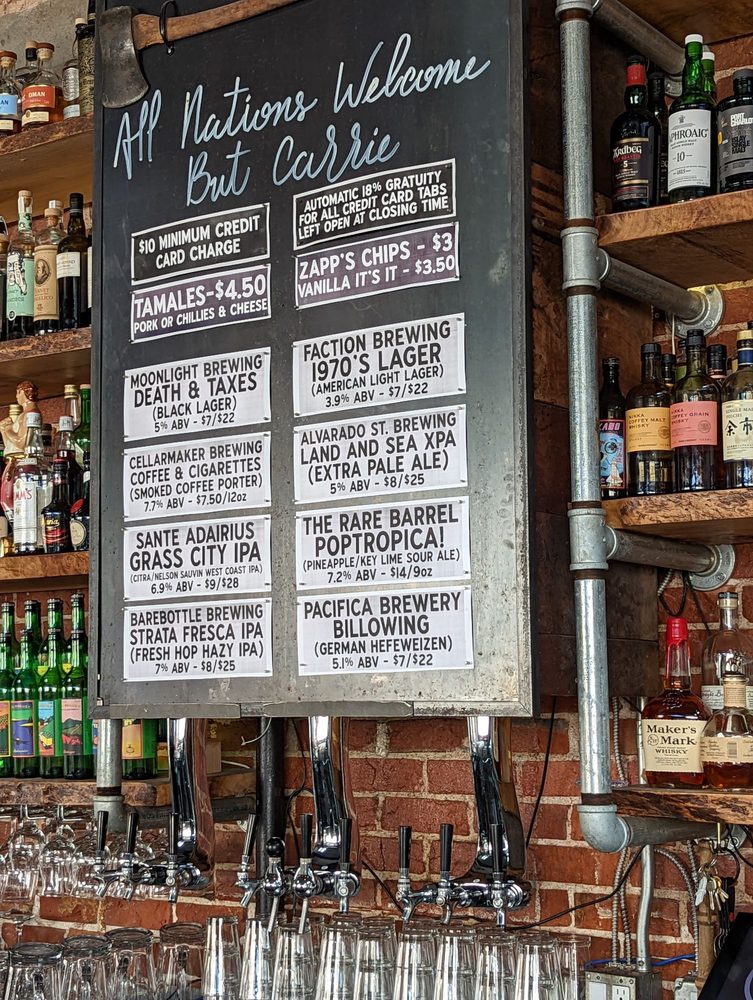 All Nations Welcome
But Carrie
$10 MINIMUM CREDIT
CARD CHARGE
AUTOMATIC 18% GRATUITY
FOR ALL CREDIT CARD TABS
LEFT OPEN AT CLOSING TIME
TAMALES-$4.50
PORK OR CHILLIES & CHEESE
ZAPP'S CHIPS - $3
VANILLA IT'S IT - $3.50
MOONLIGHT BREWING
DEATH & TAXES
(BLACK LAGER)
5% ABV - $7/$22
FACTION BREWING
1970'S LAGER
(AMERICAN LIGHT LAGER)
3.9% ABV - $7/$22
CELLARMAKER BREWING
COFFEE & CIGARETTES
(SMOKED COFFEE PORTER)
7.7% ABV - $7.50/12oz
ALVARADO ST. BREWING
LAND AND SEA XPA
(EXTRA PALE ALE)
5% ABV - $8/$25
SANTE ADAIRIUS
GRASS CITY IPA
(CITRA/NELSON SAUVIN WEST COAST IPA)
6.9% ABV - $9/$28
THE RARE BARREL
POPTROPICA!
(PINEAPPLE/KEY LIME SOUR ALE)
7.2% ABV - $14/9oz
BAREBOTTLE BREWING
STRATA FRESCA IPA
(FRESH HOP HAZY IPA)
7% ABV - $8/$25
PACIFICA BREWERY
BILLOWING
(GERMAN HEFEWEIZEN)
5.1% ABV - $7/$22
OMAN
ARDBEG
5
LAPHROAIG
10
PORT CHARLOTTE
NIKKA
COFFEY MALT
WHISKY
NIKKA
COFFEY GRAIN
WHISKY
SINGLE MALT
余市
Maker's
Mark
WHISKY